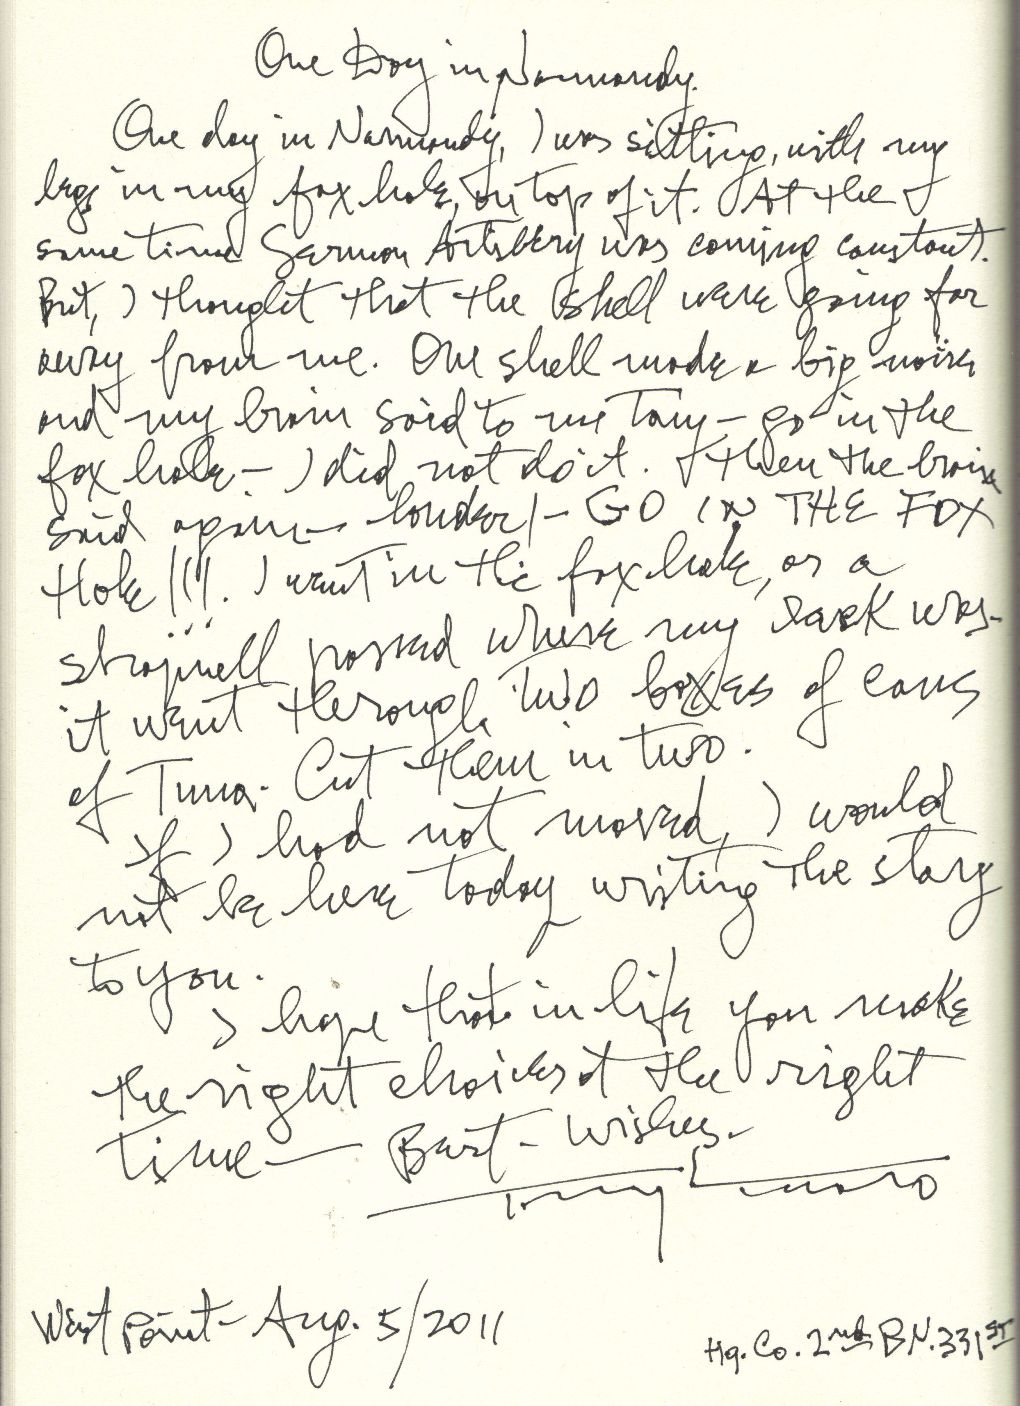 One Day in Normandy.
One day in Normandy, I was sitting, with my
legs in my fox hole, on top of it. At the
same time German Artillery was coming constant.
But, I thought that the shell were going far
away from me. One shell made a big noise
and my brain said to me Tony - go in the
fox hole - I did not do it. then the brain
said again - louder! - GO IN THE FOX
Hole !!!. I went in the fox hole, as a
shrapnell passed where my sack was-
it went through two boxes of cans
of Tuna. Cut them in two.
If I had not moved, I would
not be here today writing the story
to you.
I hope that in life you make
the right choices at the right
time - Best - Wishes.
Tony
West Point - Aug. 5/2011
Hq. Co. 2nd BN. 331ST